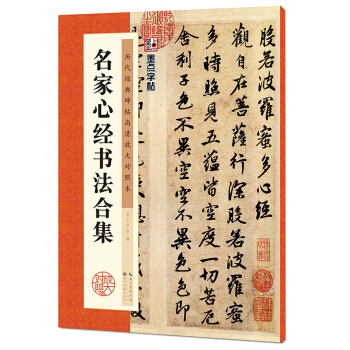 般若波羅蜜多心經
觀自在菩薩行深般若波羅蜜
多時照見五蘊皆空度一切苦厄
舍利子色不異空空不異色色即
墨点字帖
历代经典碑帖高清放大对照本
名家心经书法合集